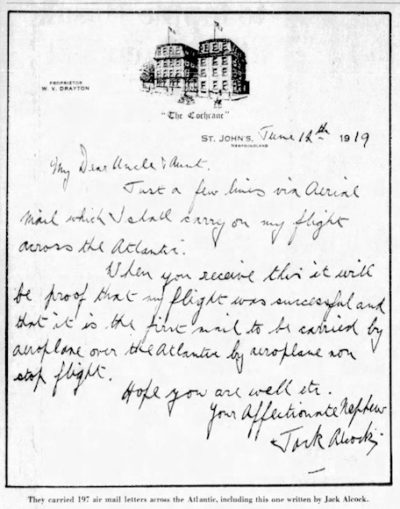 PROPRIETOR
W. V. DRAYTON
"The Cochrane"
ST. JOHN'S, June 12th 1919
NEWFOUNDLAND
My Dear Uncle & Aunt.
Just a few lines via Aerial
mail which I shall carry on my flight
across the Atlantic.
When you receive this it will
be proof that my flight was sucessful and
that it is the first mail to be carried by
aeroplane over the Atlantic by aeroplane non
stop flight.
Hope you are well etc.
Your Affectionate Nephew
Jack Alcock
They carried 197 air mail letters across the Atlantic, including this one written by Jack Alcock.